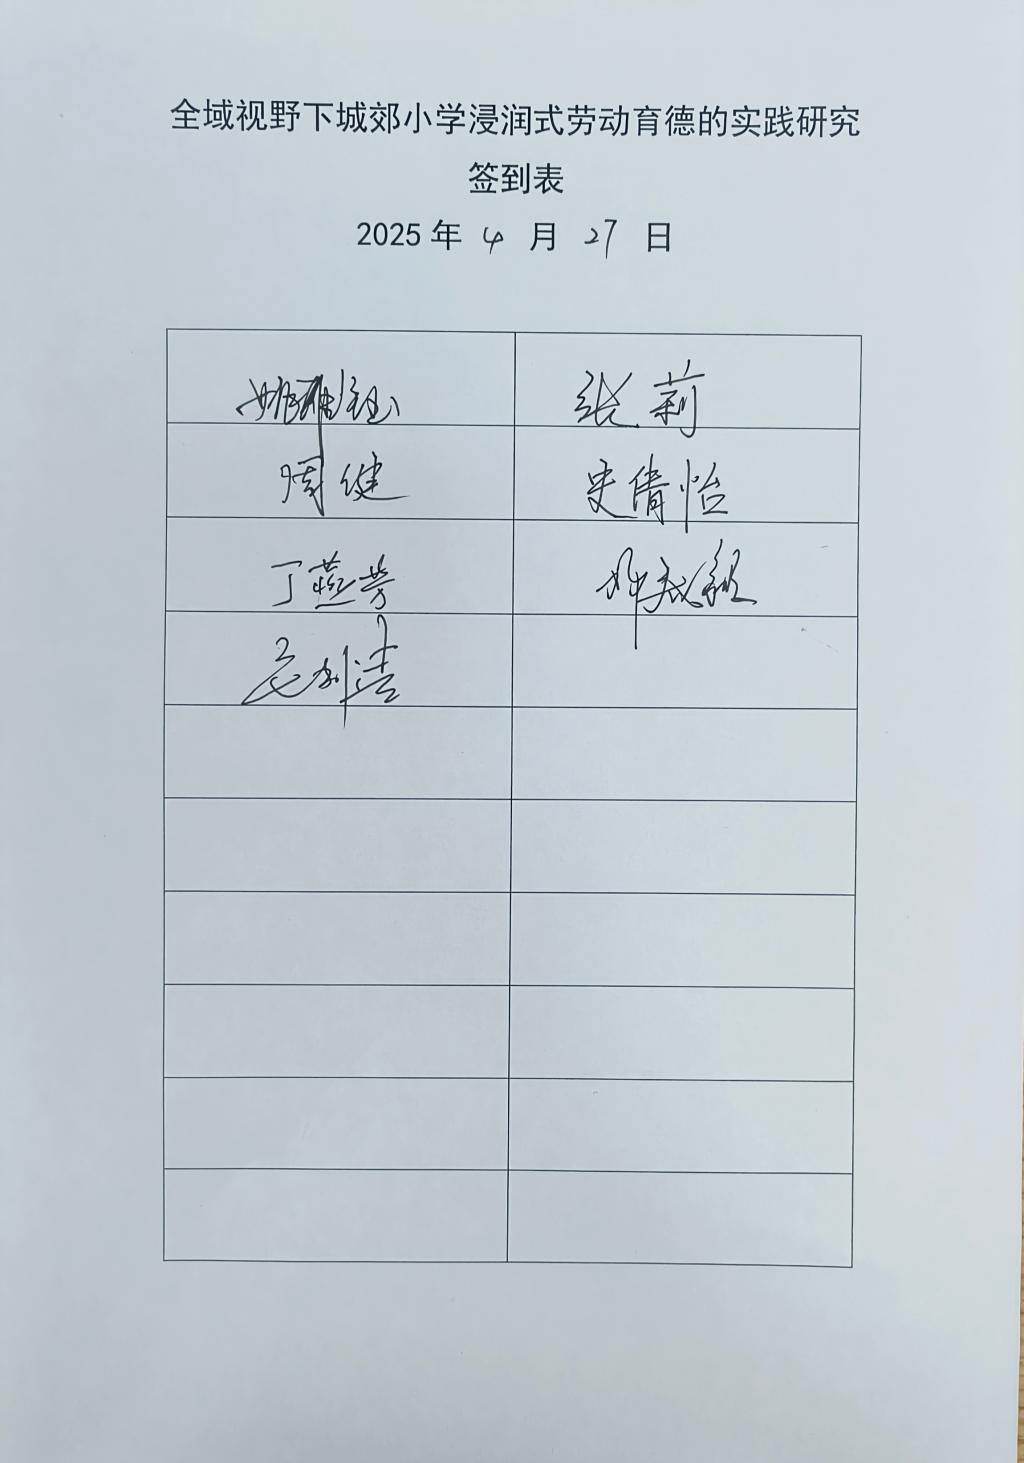 全域视野下城郊小学浸润式劳动育德的实践研究
签到表
2025 年 4 月 27 日
张莉
周健
史倩怡
丁燕芳